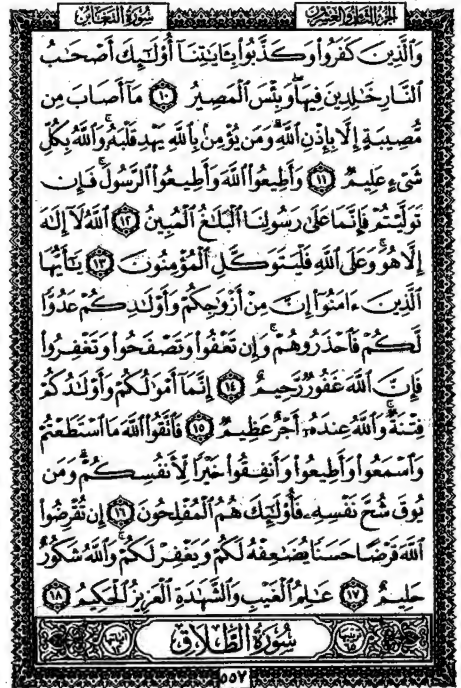 الجزء الثامن والعشرون
سورة التغابن
وَالَّذِينَ كَفَرُوا۟ وَكَذَّبُوا۟ بِـَٔايَـٰتِنَآ أُو۟لَـٰٓئِكَ أَصْحَـٰبُ
النَّارِ خَـٰلِدِينَ فِيهَا ۖ وَبِئْسَ الْمَصِيرُ ١٠ مَآ أَصَابَ مِن
مُّصِيبَةٍ إِلَّا بِإِذْنِ اللَّهِ ۗ وَمَن يُؤْمِنۢ بِاللَّهِ يَهْدِ قَلْبَهُۥ ۚ وَاللَّهُ بِكُلِّ
شَىْءٍ عَلِيمٌ ١١ وَأَطِيعُوا۟ اللَّهَ وَأَطِيعُوا۟ الرَّسُولَ ۚ فَإِن
تَوَلَّيْتُمْ فَإِنَّمَا عَلَىٰ رَسُولِنَا الْبَلَـٰغُ الْمُبِينُ ١٢ اللَّهُ لَآ إِلَـٰهَ
إِلَّا هُوَ ۚ وَعَلَى اللَّهِ فَلْيَتَوَكَّلِ الْمُؤْمِنُونَ ١٣ يَـٰٓأَيُّهَا
الَّذِينَ ءَامَنُوٓا۟ إِنَّ مِنْ أَزْوَٰجِكُمْ وَأَوْلَـٰدِكُمْ عَدُوًّا
لَّكُمْ فَاحْذَرُوهُمْ ۚ وَإِن تَعْفُوا۟ وَتَصْفَحُوا۟ وَتَغْفِرُوا۟
فَإِنَّ اللَّهَ غَفُورٌ رَّحِيمٌ ١٤ إِنَّمَآ أَمْوَٰلُكُمْ وَأَوْلَـٰدُكُمْ
فِتْنَةٌ ۚ وَاللَّهُ عِندَهُۥٓ أَجْرٌ عَظِيمٌ ١٥ فَاتَّقُوا۟ اللَّهَ مَا اسْتَطَعْتُمْ
وَاسْمَعُوا۟ وَأَطِيعُوا۟ وَأَنفِقُوا۟ خَيْرًا لِّأَنفُسِكُمْ ۗ وَمَن
يُوقَ شُحَّ نَفْسِهِۦ فَأُو۟لَـٰٓئِكَ هُمُ الْمُفْلِحُونَ ١٦ إِن تُقْرِضُوا۟
اللَّهَ قَرْضًا حَسَنًا يُضَـٰعِفْهُ لَكُمْ وَيَغْفِرْ لَكُمْ ۚ وَاللَّهُ شَكُورٌ
حَلِيمٌ ١٧ عَـٰلِمُ الْغَيْبِ وَالشَّهَـٰدَةِ الْعَزِيزُ الْحَكِيمُ ١٨
ترتيبها ٦٥
سُورَةُ الطَّلَاقِ
آياتها ١٢
٥٥٧